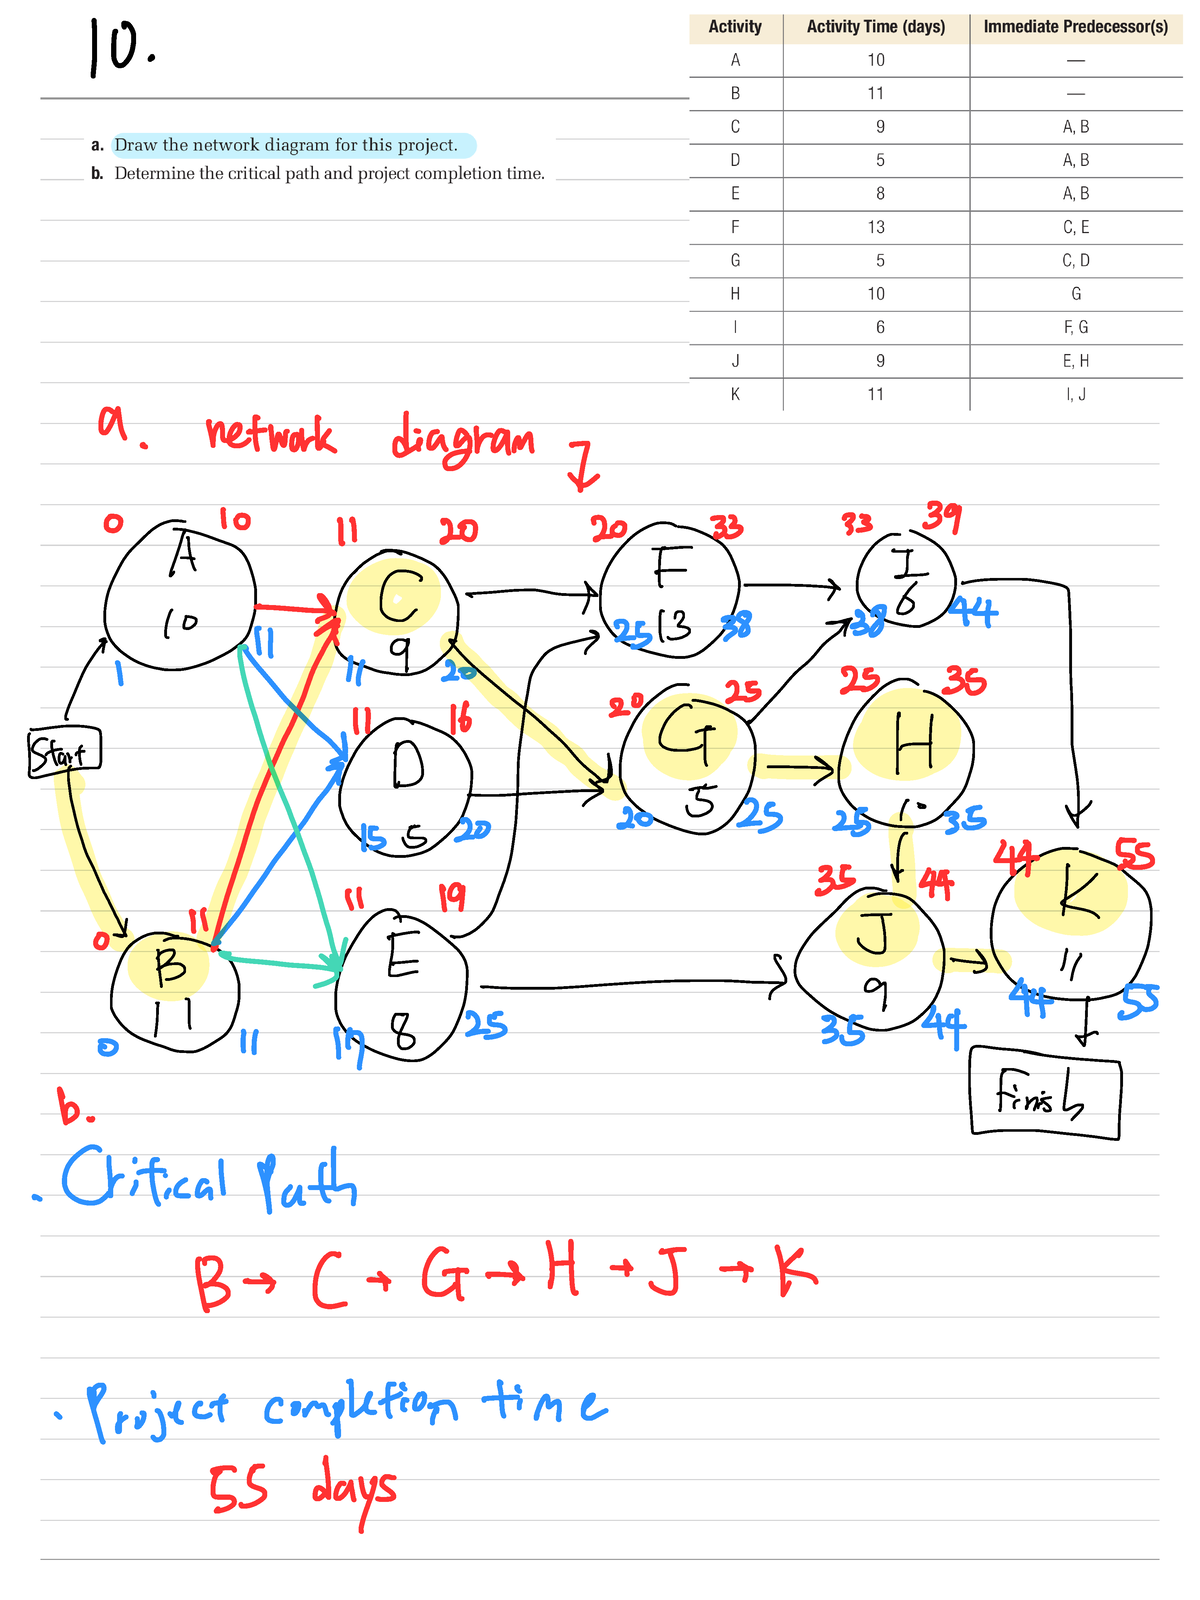 10.
a. Draw the network diagram for this project.
b. Determine the critical path and project completion time.
Activity Activity Time (days) Immediate Predecessor(s)
A 10 —
B 11 —
C 9 A, B
D 5 A, B
E 8 A, B
F 13 C, E
G 5 C, D
H 10 G
I 6 F, G
J 9 E, H
K 11 I, J
a. network diagram
0 10
A
10
1 11
11 20
C
9
11 20
20 33
F
13
25 38
33 39
I
6
38 44
Start
11 16
D
5
15 20
20 25
G
5
20 25
25 35
H
10
25 35
0 11
B
11
0 11
11 19
E
8
17 25
35 44
J
9
35 44
44 55
K
11
44 55
Finish
b.
. Critical Path
B → C → G → H → J → K
. Project completion time
55 days